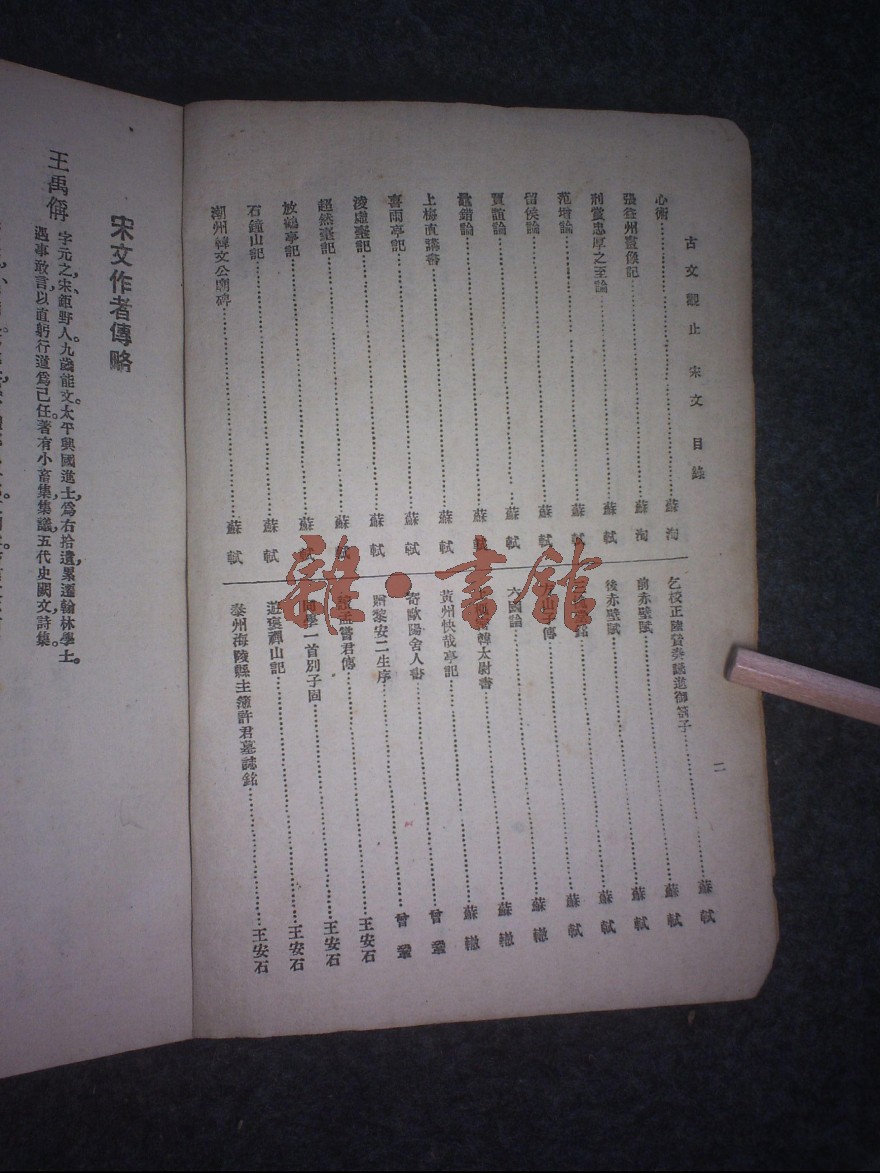 古文觀止 宋文目錄
二
心術 蘇洵
張益州畫像記 蘇洵
刑賞忠厚之至論 蘇軾
范增論 蘇軾
留侯論 蘇軾
賈誼論 蘇軾
鼂錯論 蘇軾
上梅直講書 蘇軾
喜雨亭記 蘇軾
淩虛臺記 蘇軾
超然臺記 蘇軾
放鶴亭記 蘇軾
石鐘山記 蘇軾
潮州韓文公廟碑 蘇軾
乞校正陸贄奏議進御劄子 蘇軾
前赤壁賦 蘇軾
後赤壁賦 蘇軾
銘 蘇軾
山子傳 蘇軾
六國論 蘇轍
韓太尉書 蘇轍
黃州快哉亭記 蘇轍
寄歐陽舍人書 曾鞏
贈黎安二生序 曾鞏
孟嘗君傳 王安石
同學一首別子固 王安石
遊褒禪山記 王安石
泰州海陵縣主簿許君墓誌銘 王安石
雜·書館
宋文作者傳略
王禹偁 字元之,宋鉅野人。九歲能文。太平興國進士,爲右拾遺,累遷翰林學士。
遇事敢言,以直躬行道爲己任。著有小畜集,集議,五代史闕文,詩集。